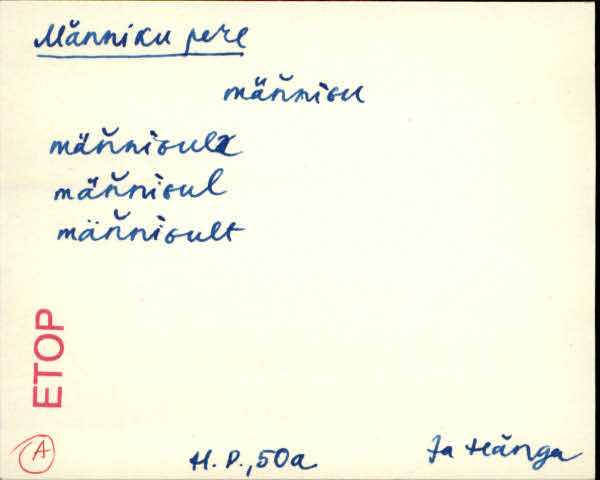 Männiku pere
mäňniɢu
mäňniɢulᴇ
mäňniɢul
mäňniɢult
ETOP
A
H. P., 50a
Ja Hänga